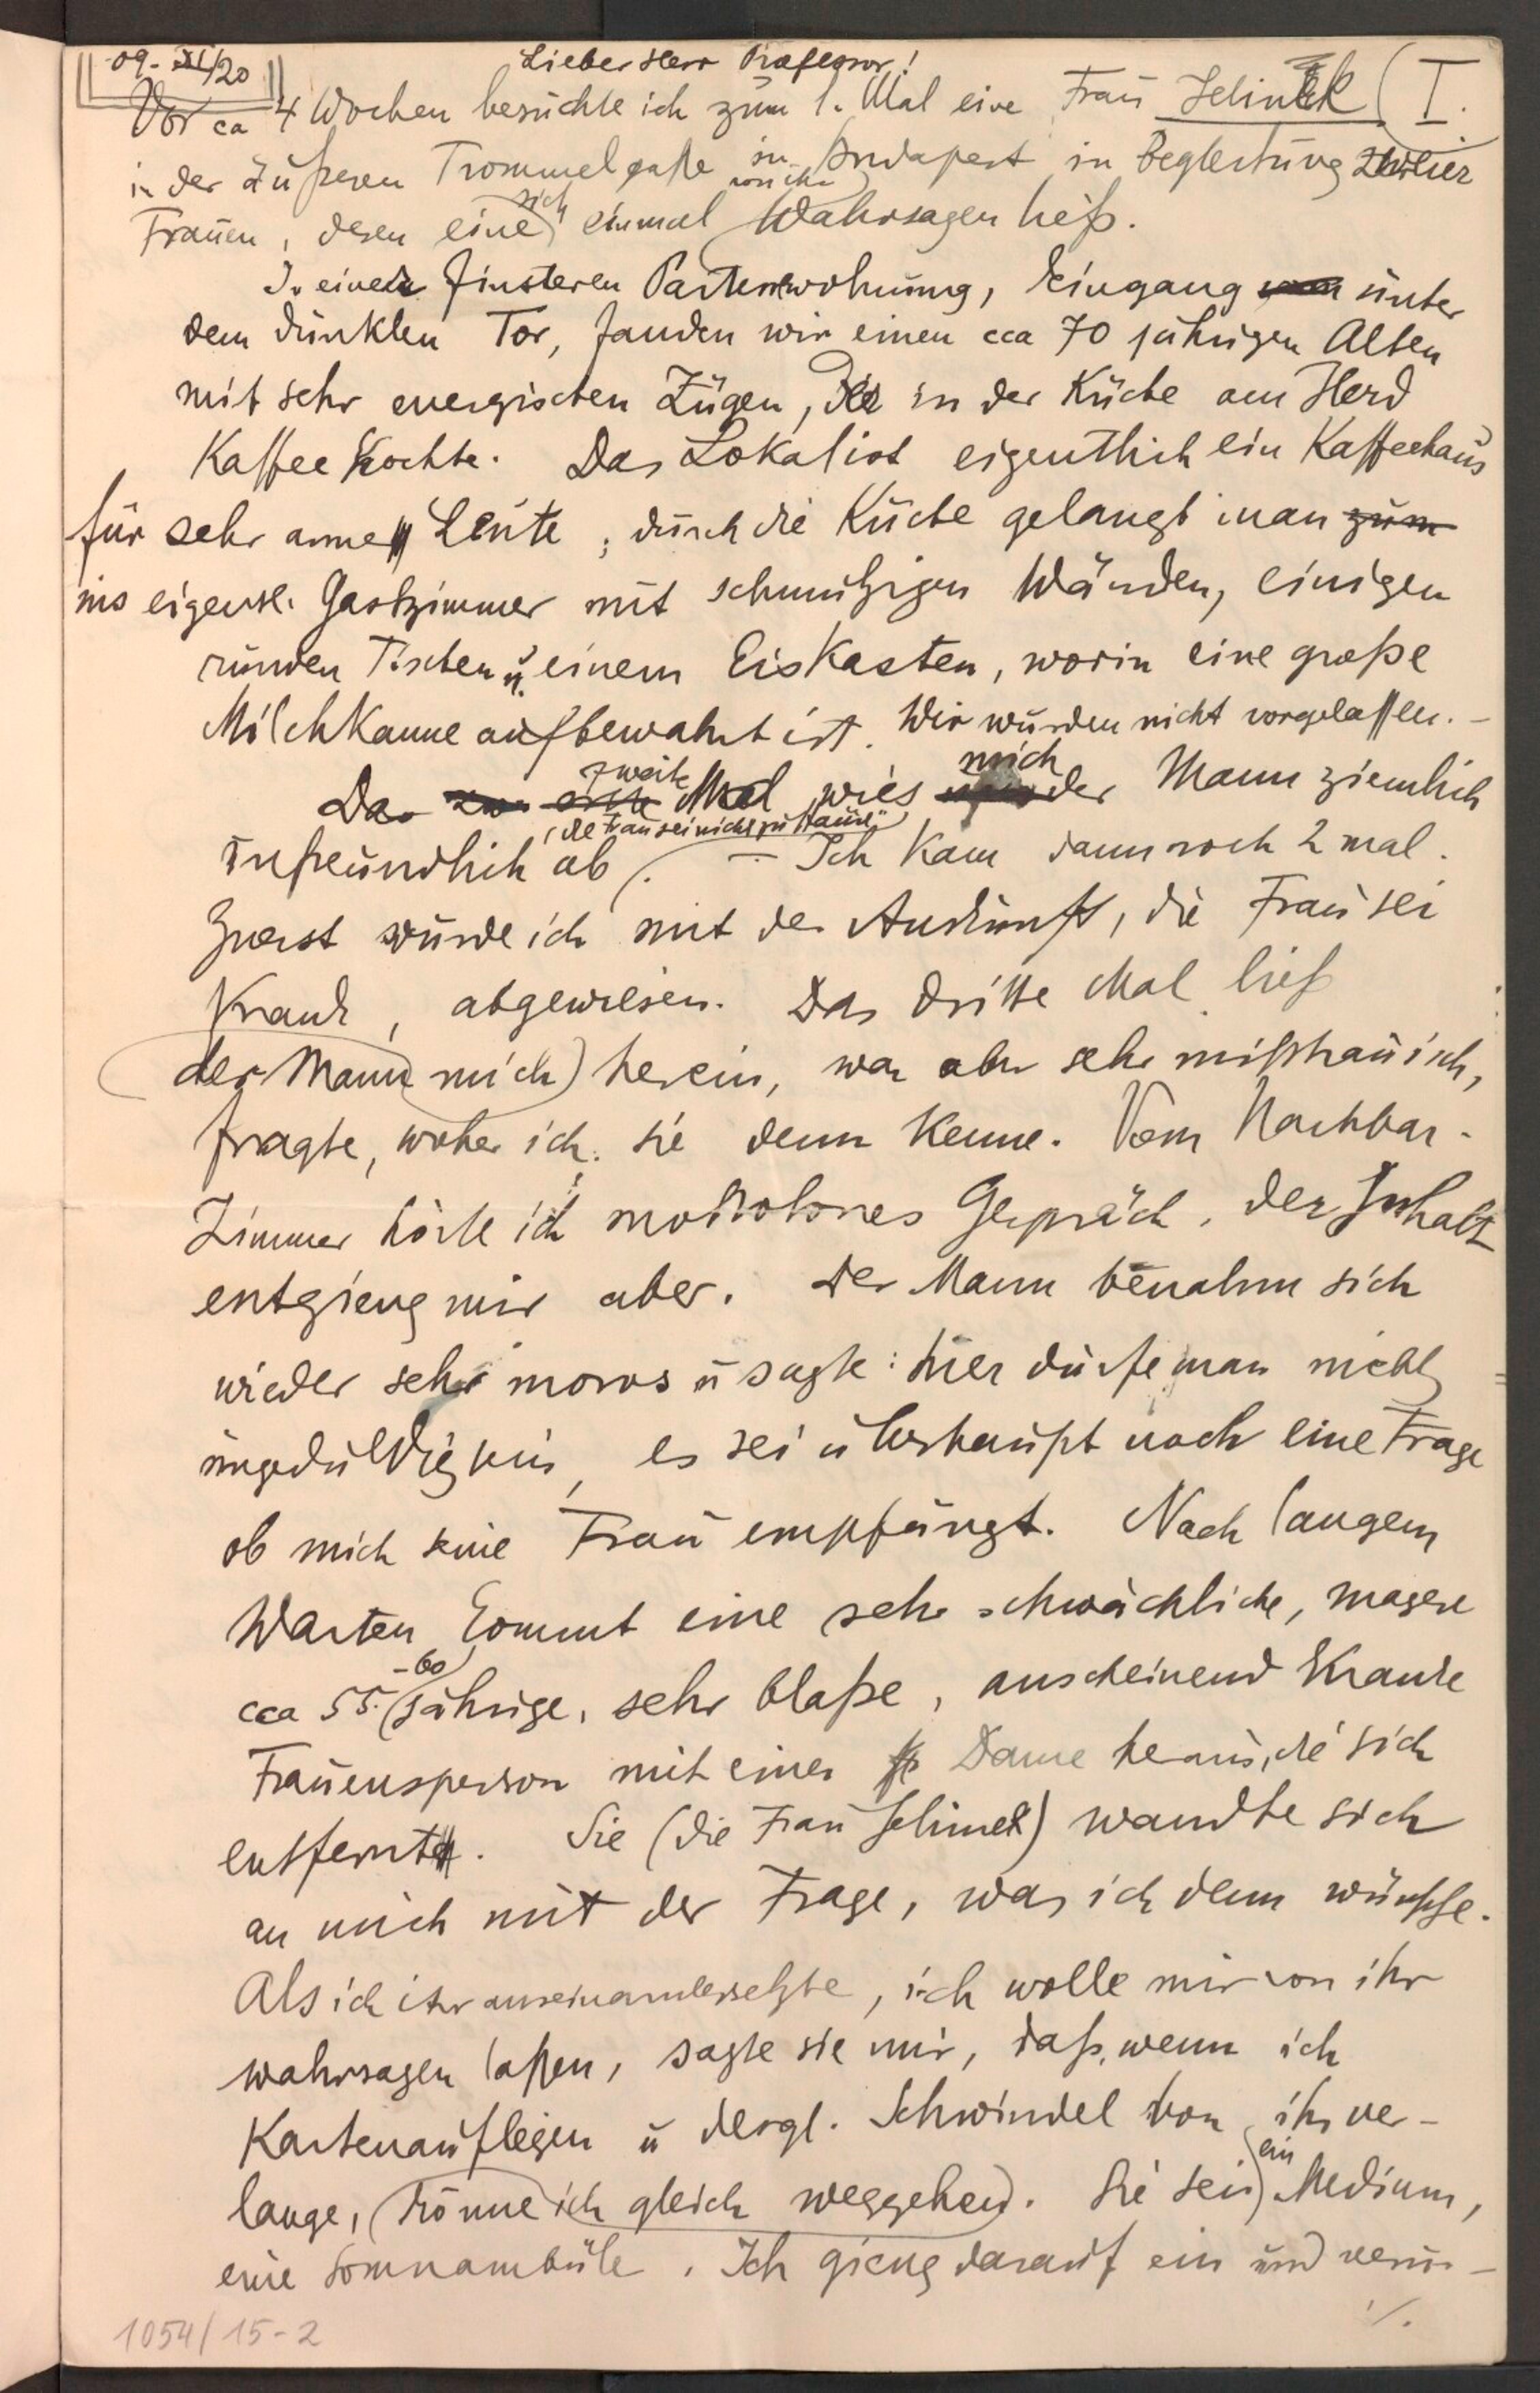 09-XI/20
Lieber Herr Professor!
I.
Vor ca 4 Wochen besuchte ich zum 1. Mal eine Frau Jelinek
in der Äußeren Trommelgaße in Budapest in Begleitung zweier
Frauen, deren eine sich einmal Wahrsagen ließ.
In einer finsteren Parterrewohnung, Eingang unter
dem dunklen Tor, fanden wir einen cca 70 jährigen Alten
mit sehr energischen Zügen, der in der Küche am Herd
Kaffee kochte. Das Lokal ist eigentlich ein Kaffeehaus
für sehr arme Leute; durch die Küche gelangt man zum
ins eigentl. Gastzimmer mit schmutzigen Wänden, einigen
runden Tischen u. einem Eiskasten, worin eine große
Milchkanne aufbewahrt ist. Wir wurden nicht vorgelassen. –
Das zweite Mal wies mich der Mann ziemlich
unfreundlich ab („die Frau sei nicht zu Hause"). – Ich kam dann noch 2 mal.
Zuerst wurde ich mit der Auskunft, die Frau sei
Krank, abgewiesen. Das dritte Mal ließ
der Mann mich herein, war aber sehr mißtrauisch,
fragte, woher ich sie denn kenne. Vom Nachbar-
Zimmer hörte ich monotones Gespräch, der Inhalt
entgieng mir aber. Der Mann benahm sich
wieder sehr moros u sagte: hier dürfe man nicht
ungeduldig sein, es sei überhaupt noch eine Frage
ob mich seine Frau empfängt. Nach langem
Warten kommt eine sehr schwächliche, magere
cca 55-60 jährige, sehr blaße, anscheinend Kranke
Frauensperson mit einer Dame heraus, die sich
entfernte. Sie (die Frau Jelinek) wandte sich
an mich mit der Frage, was ich denn wünsche.
Als ich ihr auseinandersetzte, ich wolle mir von ihr
wahrsagen laßen, sagte sie mir, daß, wenn ich
Kartenauflegen u dergl. Schwindel von ihr ver-
lange, könne ich gleich weggehen. Sie sei ein Medium,
eine Somnambule. Ich gieng darauf ein und
./.
1054/15-2